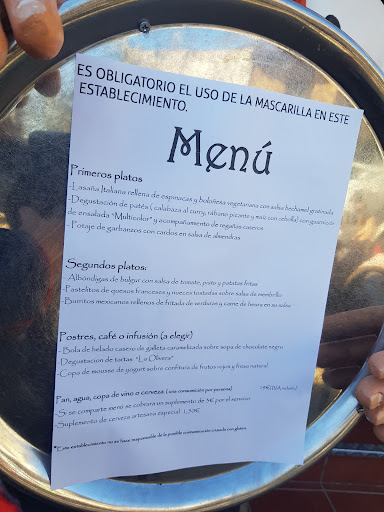 ES OBLIGATORIO EL USO DE LA MASCARILLA EN ESTE
ESTABLECIMIENTO.
Menú
Primeros platos
-Lasaña Italiana rellena de espinacas y boloñesa vegetariana con salsa bechamel gratinada
-Degustación de patés ( calabaza al curry, rábano picante y maíz con cebolla) con guarnición
de ensalada "Multicolor" y acompañamiento de regañas caseros
- Potaje de garbanzos con cardos en salsa de almendras
Segundos platos:
- Albóndigas de bulgur con salsa de tomate, pisto y patatas fritas
- Pastelitos de quesos franceses y nueces tostadas sobre salsa de membrillo
- Burritos mexicanos rellenos de fritada de verduras y carne de heura en su salsa
Postres, café o infusión (a elegir)
- Bola de helado casero de galleta caramelizada sobre sopa de chocolate negro
- Degustacion de tartas "La Olivera"
-Copa de mousse de yogurt sobre confitura de frutos rojos y fresa natural
Pan, agua, copa de vino o cerveza ( una consumición por persona) (IVA incluido)
-Si se comparte menú se cobrara un suplemento de 3€ por el servicio
-Suplemento de cerveza artesana especial 1,50€
*Este establecimiento no se hace responsable de la posible contaminación cruzada con gluten.